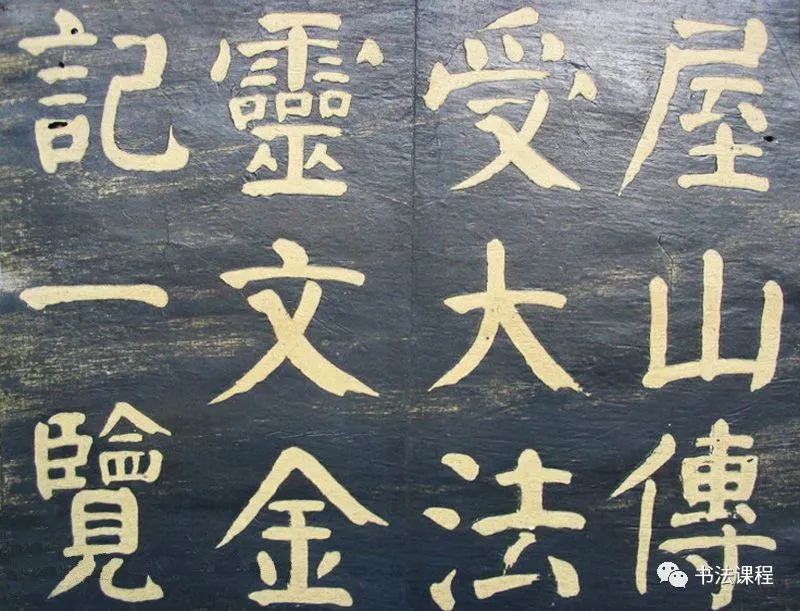 屋山傳
受大法
靈文金
記一覽
书法课程